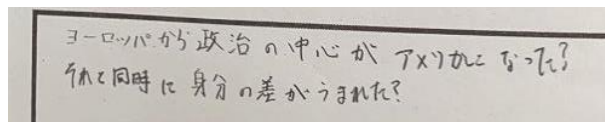 ヨーロッパから政治の中心がアメリカになった?
それと同時に身分の差がうまれた?